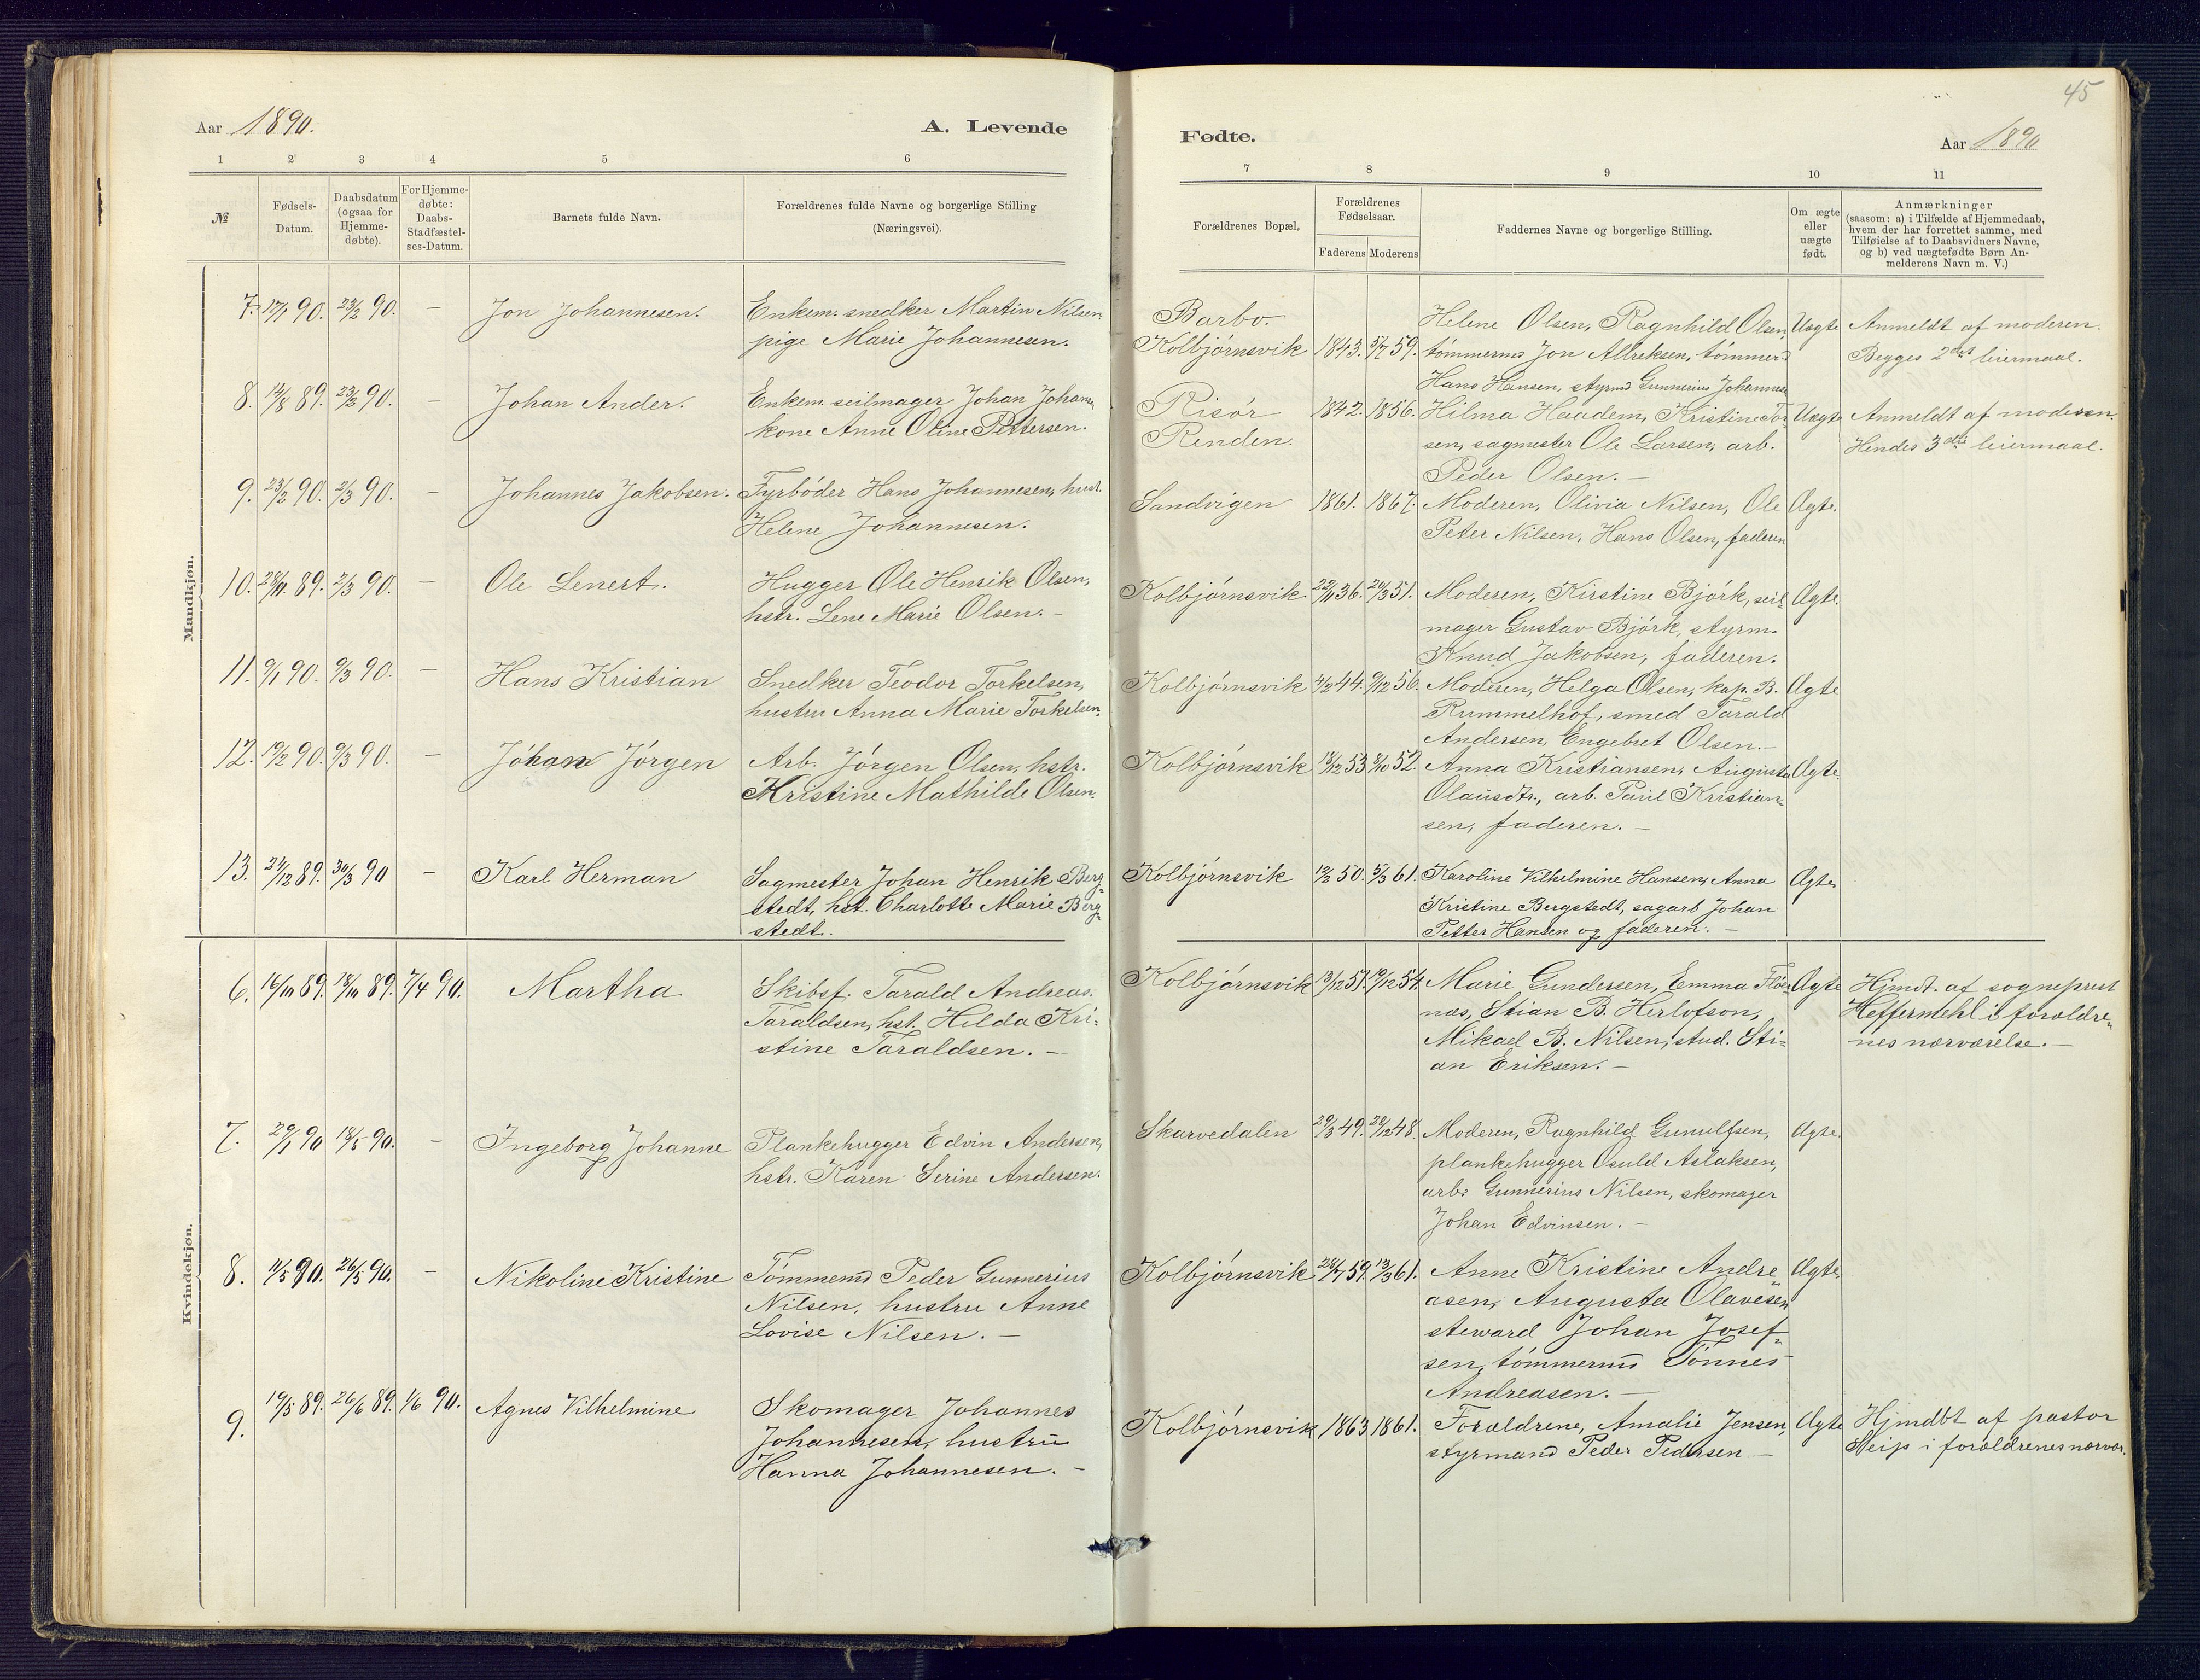 45
Aar 1890.
A. Levende
Fødte.
Aar 1890
1 2 3 4 5 6 7 8 9 10 11
№
Fødsels-
Datum.
Daabsdatum
(ogsaa for
Hjemme-
døbte).
For Hjemme-
døbte:
Daabs-
Stadfæstel-
ses-Datum.
Barnets fulde Navn.
Forældrenes fulde Navne og borgerlige Stilling
(Næringsvei).
Forældrenes Bopæl.
Forældrenes
Fødselsaar.
Faderens Moderens
Faddernes Navne og borgerlige Stilling.
Om ægte
eller
uægte
født.
Anmærkninger
(saasom: a) i Tilfælde af Hjemmedaab,
hvem der har forrettet samme, med
Tilføielse af to Daabsvidners Navne,
og b) ved uægtefødte Børn An-
melderens Navn m. V.)
Mandkjøn.
7. 17/1 90. 23/2 90. —
Jon Johannesen.
Enkem. snedker Martin Nilsen
pige Marie Johannesen.
Barbo.
Kolbjörnsvik
1843. 5/7 59.
Helene Olsen, Ragnhild Olsen,
tömmermd Jon Alfreksen, tömmermd
Hans Hansen, styrmd Gunnerius Johannesen
Uægte
Anmeldt af moderen.
Begges 2det leiermaal.
8. 14/8 89. 23/3 90. —
Johan Ander.
Enkem. seilmager Johan Johansen
kone Anne Oline Pettersen.
Risör
Renden.
1842. 1856.
Hilma Haadem, Kristine Tor
sen, sagmester Ole Larsen, arb.
Peder Olsen. —
Uægte
Anmeldt af moderen.
Hendes 3die leiermaal.
9. 23/2 90. 2/3 90. —
Johannes Jakobsen.
Fyrböder Hans Johannesen, hust.
Helene Johannesen.
Sandvigen
1861. 1867.
Moderen, Olivia Nilsen, Ole
Peter Nilsen, Hans Olsen, faderen
Ægte.
10. 28/11 89. 2/3 90. —
Ole Lenert.
Hugger Ole Henrik Olsen,
hstr. Lene Marie Olsen. —
Kolbjörnsvik
22/11 36. 20/3 51.
Moderen, Kirstine Björk, seil-
mager Gustav Björk, styrm.
Knud Jakobsen, faderen.
Ægte.
11. 9/1 90. 9/3 90. —
Hans Kristian
Snedker Teodor Torkelsen,
hustru Anna Marie Torkelsen.
Kolbjörnsvik
4/2 44. 9/12 56.
Moderen, Helga Olsen, kap. B.
Rummelhof, smed Tarald
Andersen, Engebret Olsen. —
Ægte
12. 19/2 90. 9/3 90. —
Johan Jörgen
Arb. Jörgen Olsen, hstr.
Kristine Mathilde Olsen.
Kolbjörnsvik
18/12 53 8/10 52.
Anna Kristiansen, Augusta
Olausdtr., arb. Paul Kristian-
sen, faderen. —
Ægte
13. 24/12 89. 30/3 90 —
Karl Herman
Sagmester Johan Henrik Berg-
stedt, hst. Charlotte Marie Berg-
stedt.
Kolbjörnsvik
12/2 50. 5/3 61.
Karoline Vilhelmine Hansen, Anna
Kristine Bergstedt, sagarb Johan
Petter Hansen og faderen. —
Ægte
Kvindekjøn.
6. 16/10 89. 18/10 89. 7/4 90.
Martha
Skibsf. Tarald Andreas
Taraldsen, hst. Hilda Kri-
stine Taraldsen. —
Kolbjörnsvik
13/12 51. 19/12 54.
Marie Gundersen, Emma Flöer-
næs, Stian B. Herlofson,
Mikael B. Nilsen, stud. Sti-
an Eriksen. —
Ægte
Hjmdt. af sogneprest
Heffermehl i forældre-
nes nærværelse. —
7. 29/1 90 18/5 90. —
Ingeborg Johanne
Plankehugger Edvin Andersen,
hstr. Karen Serine Andersen.
Skarvedalen
29/3 49. 28/12 48.
Moderen, Ragnhild Gunulfsen,
plankehugger Osuld Aslaksen,
arb. Gunnerius Nilsen, skomager
Johan Edvinsen. —
Ægte.
8. 11/5 90. 26/5 90. —
Nikoline Kristine
Tömmermd Peder Gunnerius
Nilsen, hustru Anne
Lovise Nilsen. —
Kolbjörnsvik
28/7 59. 13/3 61.
Anne Kristine Andre-
asen, Augusta Olavesen
steward Johan Josef-
sen, tömmermd Tönnes
Andreasen. —
Ægte
9. 19/5 89. 26/6 89. 1/6 90.
Agnes Vilhelmine
Skomager Johannes
Johannesen, hustru
Hanna Johannesen. —
Kolbjörnsvik
1863 1861.
Forældrene, Amalie Jensen,
styrmand Peder Pedersen —
Ægte
Hjmdbt af pastor
Seip i forældrenes nærvær.